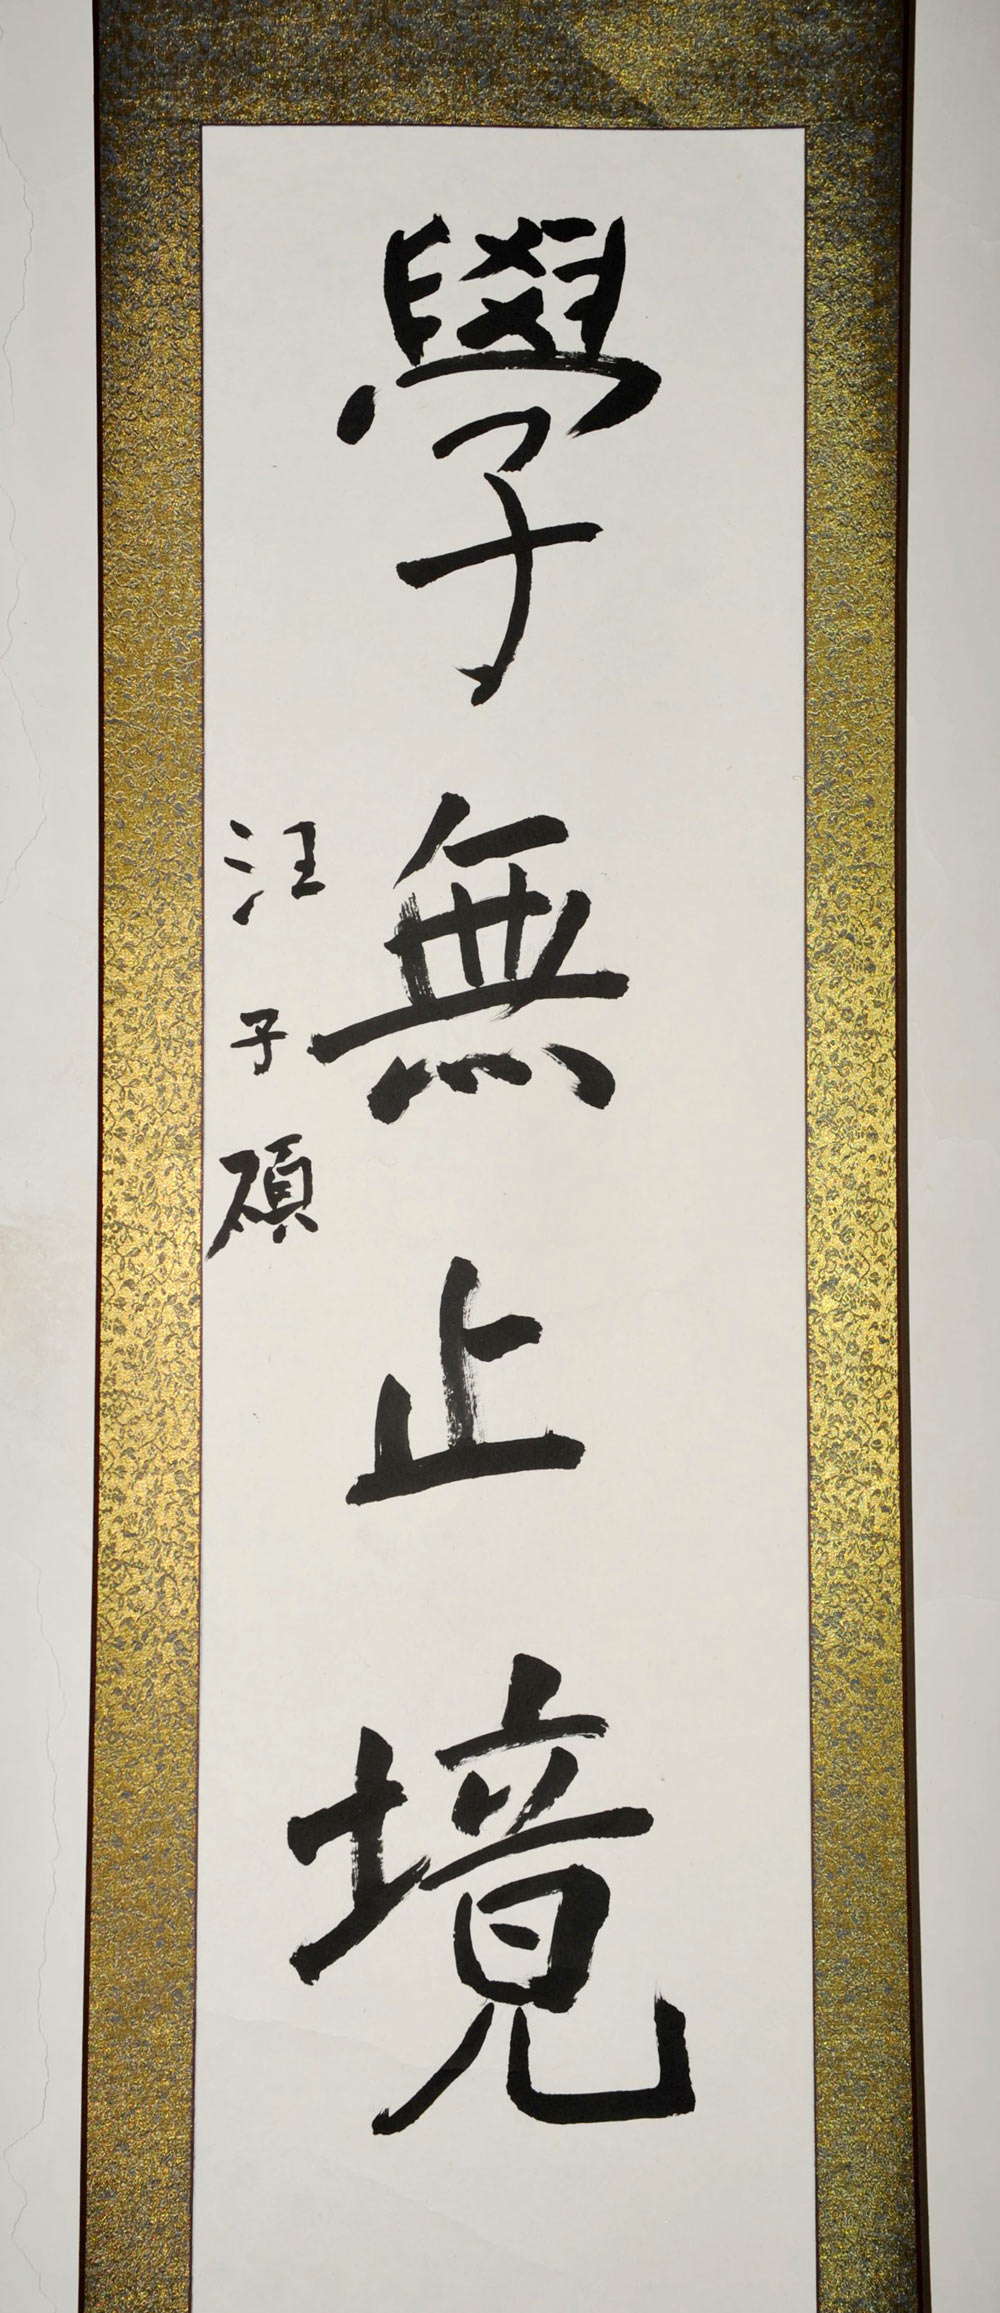 學無止境
汪子碩